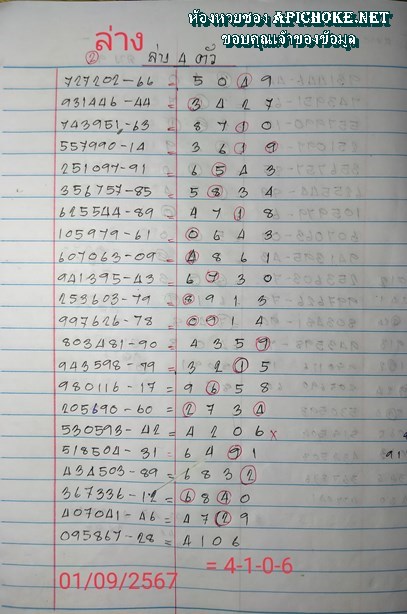 ห้องหวยซอง APICHOKE.NET
ขอบคุณเจ้าของข้อมูล
ล่าง
② ล่าง 4 ตัว
727202-66 = 5 0 4 9
931446-44 = 3 4 2 7
743951-63 = 8 7 1 0
557990-14 = 3 6 1 9
251097-91 = 6 5 4 3
356757-85 = 5 8 3 4
625544-89 = 4 7 1 8
105979-61 = 0 6 4 3
607063-09 = 4 8 6 1
941395-43 = 6 7 3 0
253603-79 = 8 9 1 3
997626-78 = 0 9 1 4
803481-90 = 4 3 5 9
943598-79 = 3 2 1 5
980116-17 = 9 6 5 8
205690-60 = 2 7 3 4
530593-42 = 4 2 0 6 x
518504-31 = 6 4 9 1
434503-89 = 6 8 3 2
367336-12 = 6 8 4 0
407041-46 = 4 7 2 9
095867-28 = 4 1 0 6
= 4-1-0-6
01/09/2567